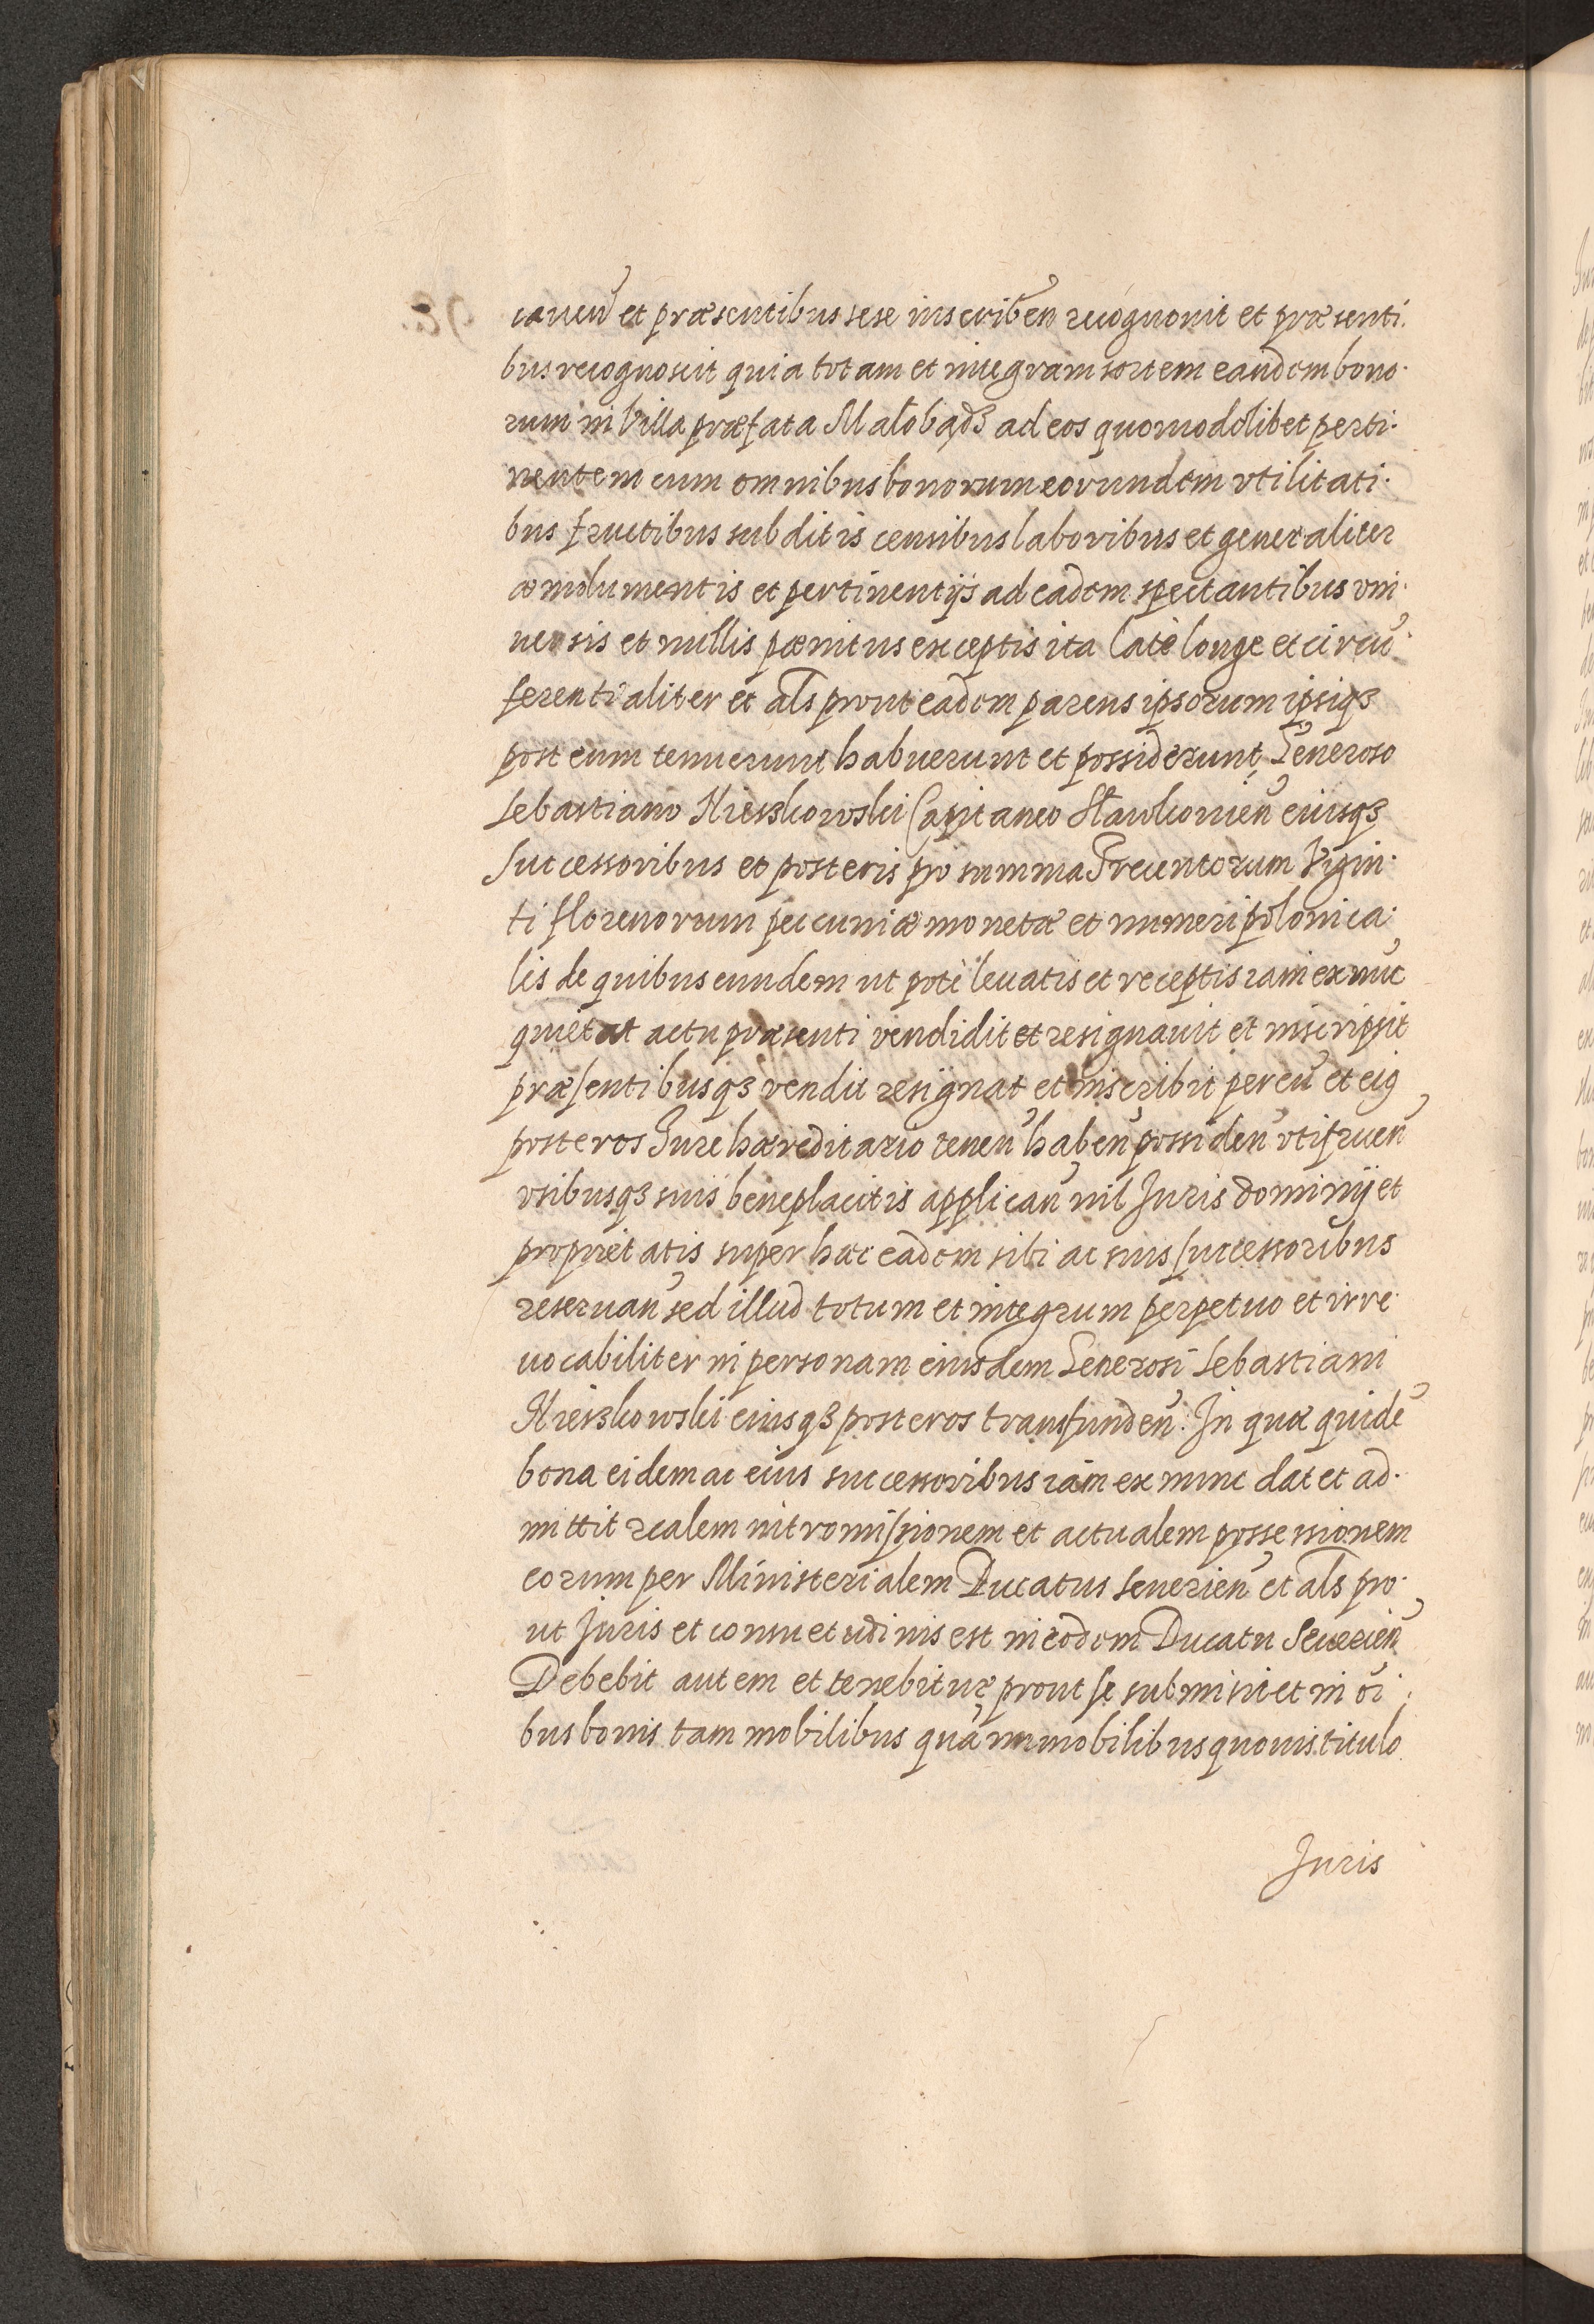 cauen et præsentibus sese inscriben recognouit et præsenti.
bus recognoscit quia totam et integram sortem eandem bono.
rum in Villa præfata Małobądz ad eos quomodolibet perti.
nentem cum omnibus bonorum eorundem vtilitati.
bus fructibus subditis censibus laboribus et generaliter
æmolumentis et pertinentijs ad eadem spectantibus vni.
uersis et nullis pænitus exceptis ita latè longe et circū.
ferentialiter et als prout eadem parens ipsorum ipsiqȝ
post eum tenuerunt habuerunt et possiderunt, Generoso
Sebastiano Mieszkowski Capitaneo Sławkouien eiusqȝ
Successoribus et posteris pro summa Trecentorum Vigin.
ti florenorum peccuniæ monetæ et numeri polonica.
lis de quibus eundem ut potè leuatis et receptis iam ex nūc
quietat actu præsenti vendidit et resignauit et inscripsit
præsentibusqȝ vendit resignat et inscribit per eū et eiꝯ
posteros Jure hæreditario tenen haben possiden vtifruen
vsibusqȝ suis beneplacitis applican nil Juris dominij et
proprietatis super hæc eadem sibi ac suis successoribus
reseruan sed illud totum et integrum perpetuo et irre.
uocabiliter in personam eiusdem Generosi Sebastiani
Mieszkowski eiusqȝ posteros transfunden. In quæ quidē
bona eidem ac eius successoribus iam ex nunc dat et ad.
mittit realem intromissionem et actualem possessionem
eorum per Ministerialem Ducatus Seuerien et als pro.
ut Juris et consuetudinis est in eodem Ducatu Seuerien
Debebit autem et tenebitur prout se submisit et in oī.
bus bonis tam mobilibus quā immobilibus quouis titulo
Juris